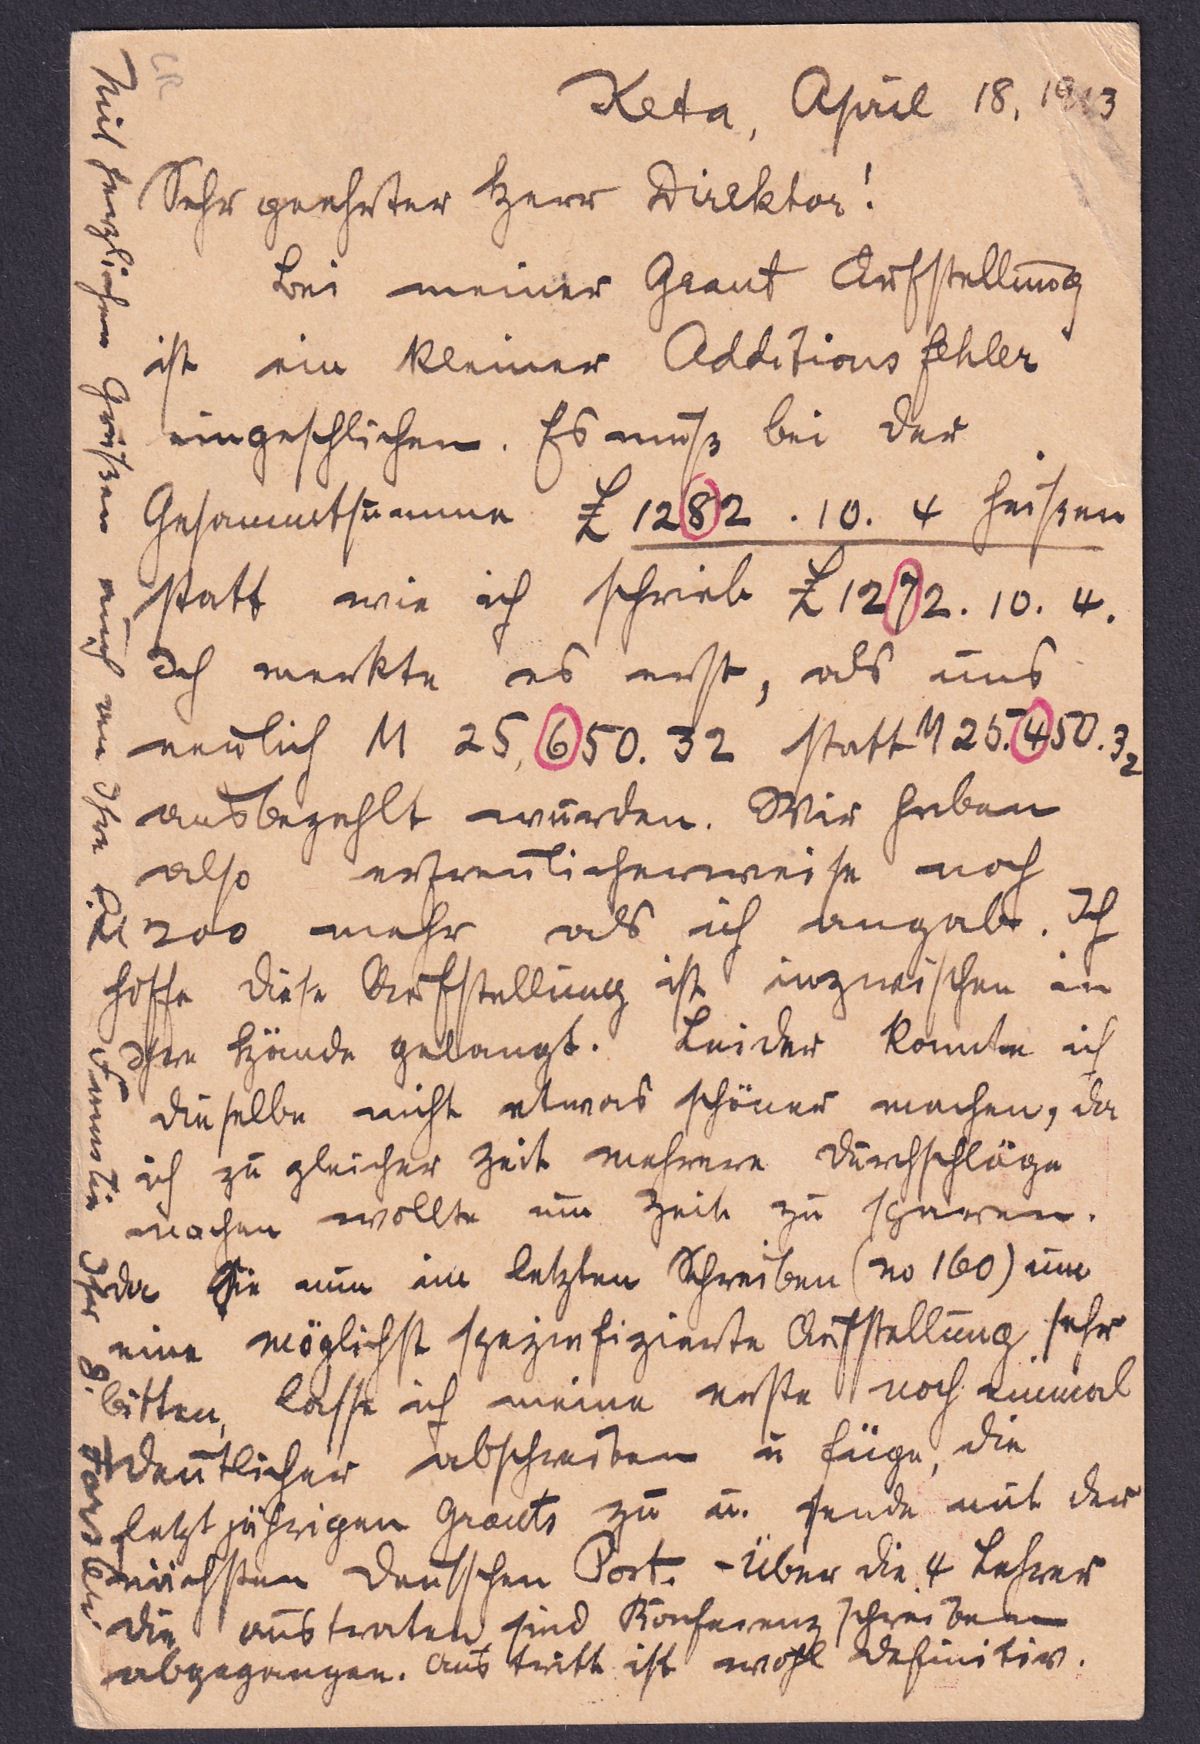 Keta, April 18, 1913
Sehr geehrter Herr Direktor!
Bei meiner Grant Aufstellung
ist ein kleiner Additionsfehler
eingeschlichen. Es muß bei der
Gesammtsumme £ 1282 . 10. 4 heißen
statt wie ich schrieb £ 1272. 10. 4.
Ich merkte es erst, als uns
neulich M 25,650.32 statt M 25.450.32
ausbezahlt wurden. Wir haben
also erfreulicherweise noch
M 200 mehr als ich angab. Ich
hoffe diese Aufstellung ist inzwischen in
Ihre Hände gelangt. Leider konnte ich
dieselbe nicht etwas schöner machen, da
ich zu gleicher Zeit mehrere Durchschläge
machen wollte um Zeit zu sparen.
Da Sie nun im letzten Schreiben (no 160) um
eine möglichst spezifizierte Aufstellung sehr
bitten, lasse ich meine erste noch einmal
deutlicher abschreiben u füge, die
letztjährigen Grants zu u. sende mit der
nächsten deutschen Post. - Über die 4 Lehrer
die austraten sind Konferenzschreiben
abgegangen. Austritt ist wohl definitiv.
Mit herzlichen Grüßen auch an Ihre l. Familie Ihr
CR